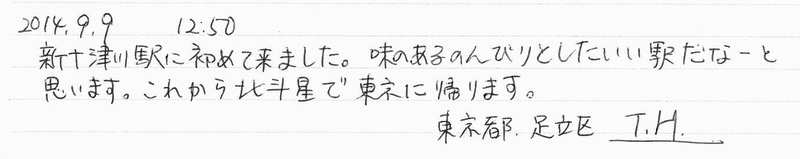 2014.9.9 12:50
新十津川駅に初めて来ました。味のあるのんびりとしたいい駅だなーと
思います。これから北斗星で東京に帰ります。
東京都.足立区 T.H.